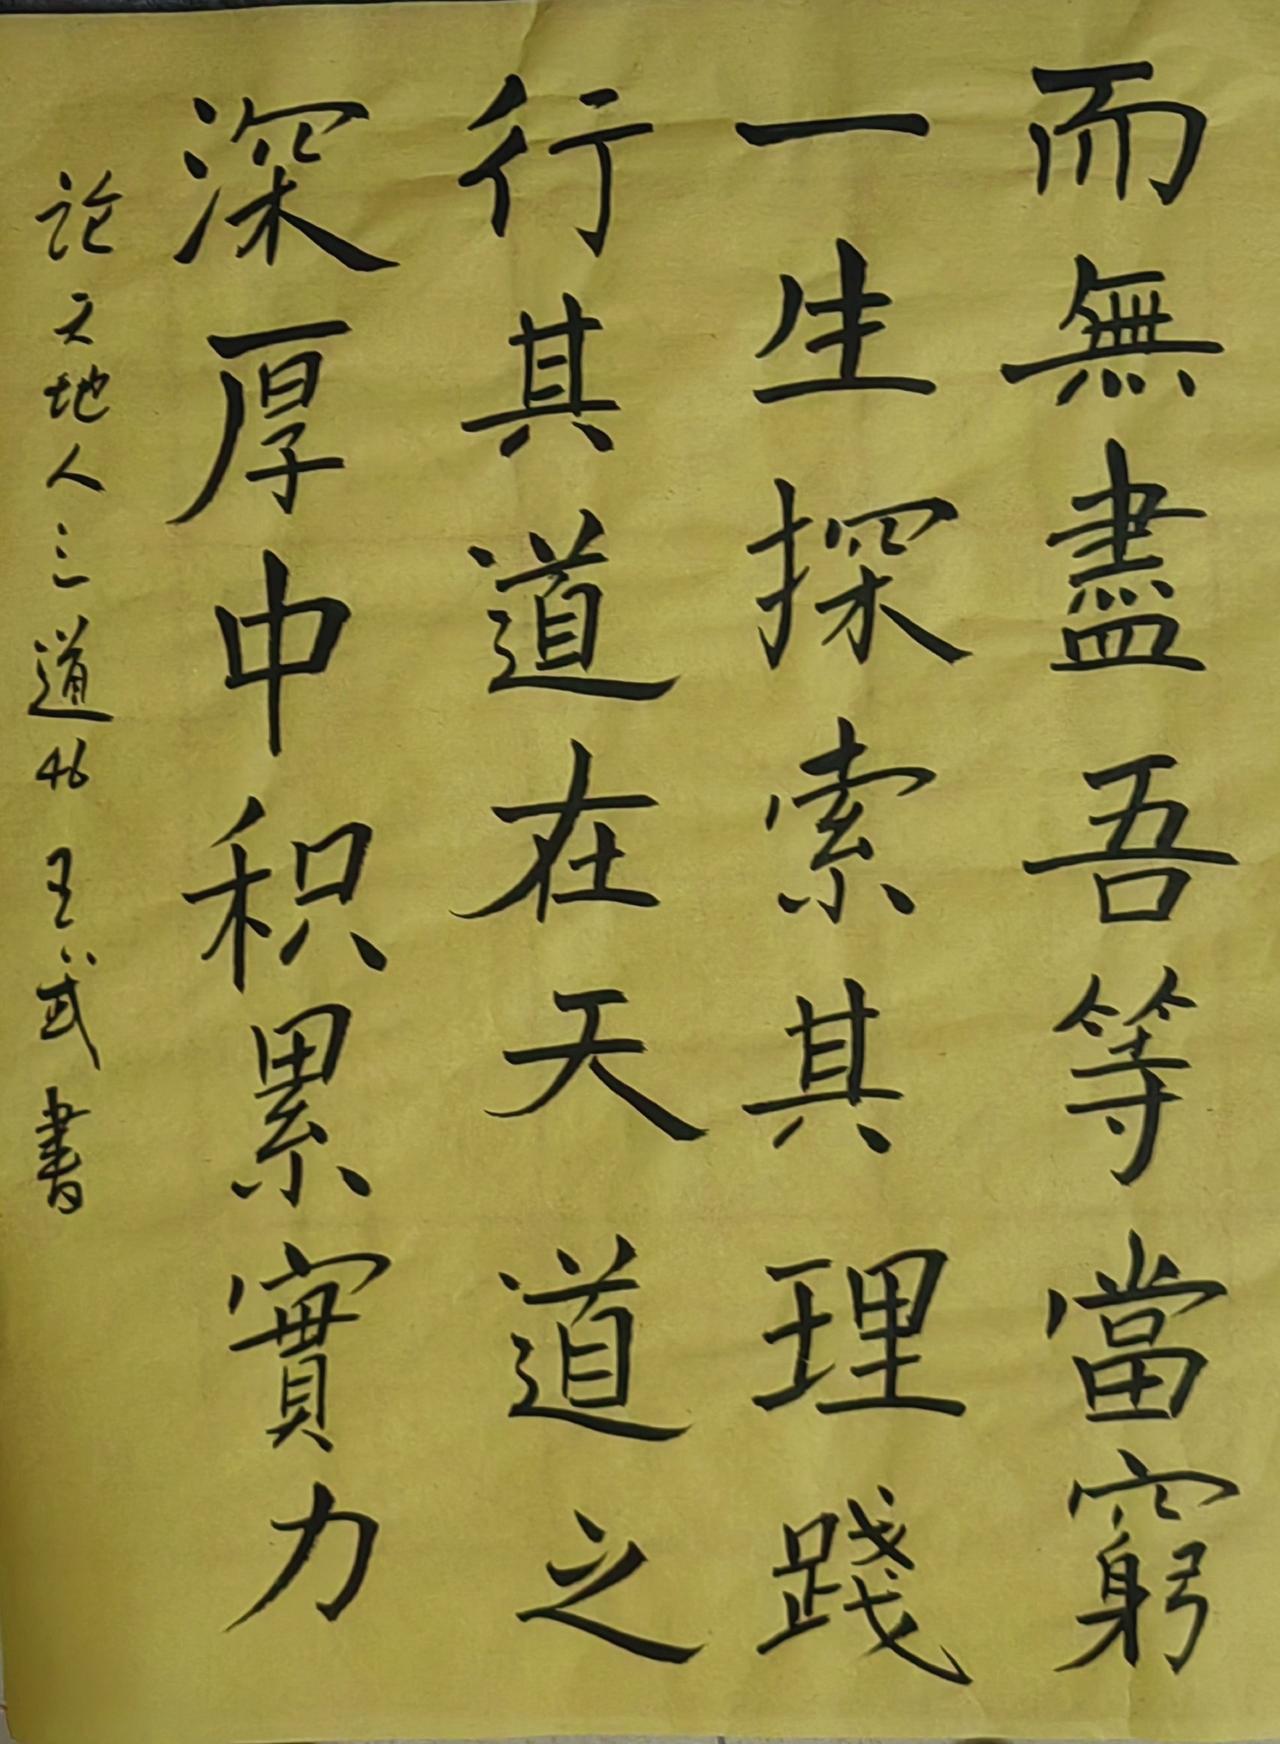 而無盡吾等當窮
一生探索其理踐
行其道在天道之
深厚中积累實力
论天地人三道46 王八武書